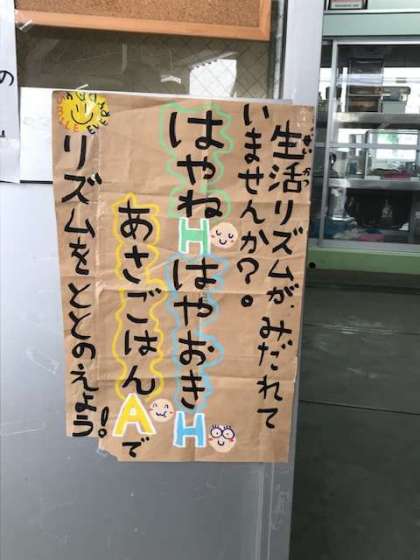 生活リズムが、みだれて
いませんか?。
はやねHはやおきH
あさごはんAで
リズムをととのえよう!
の